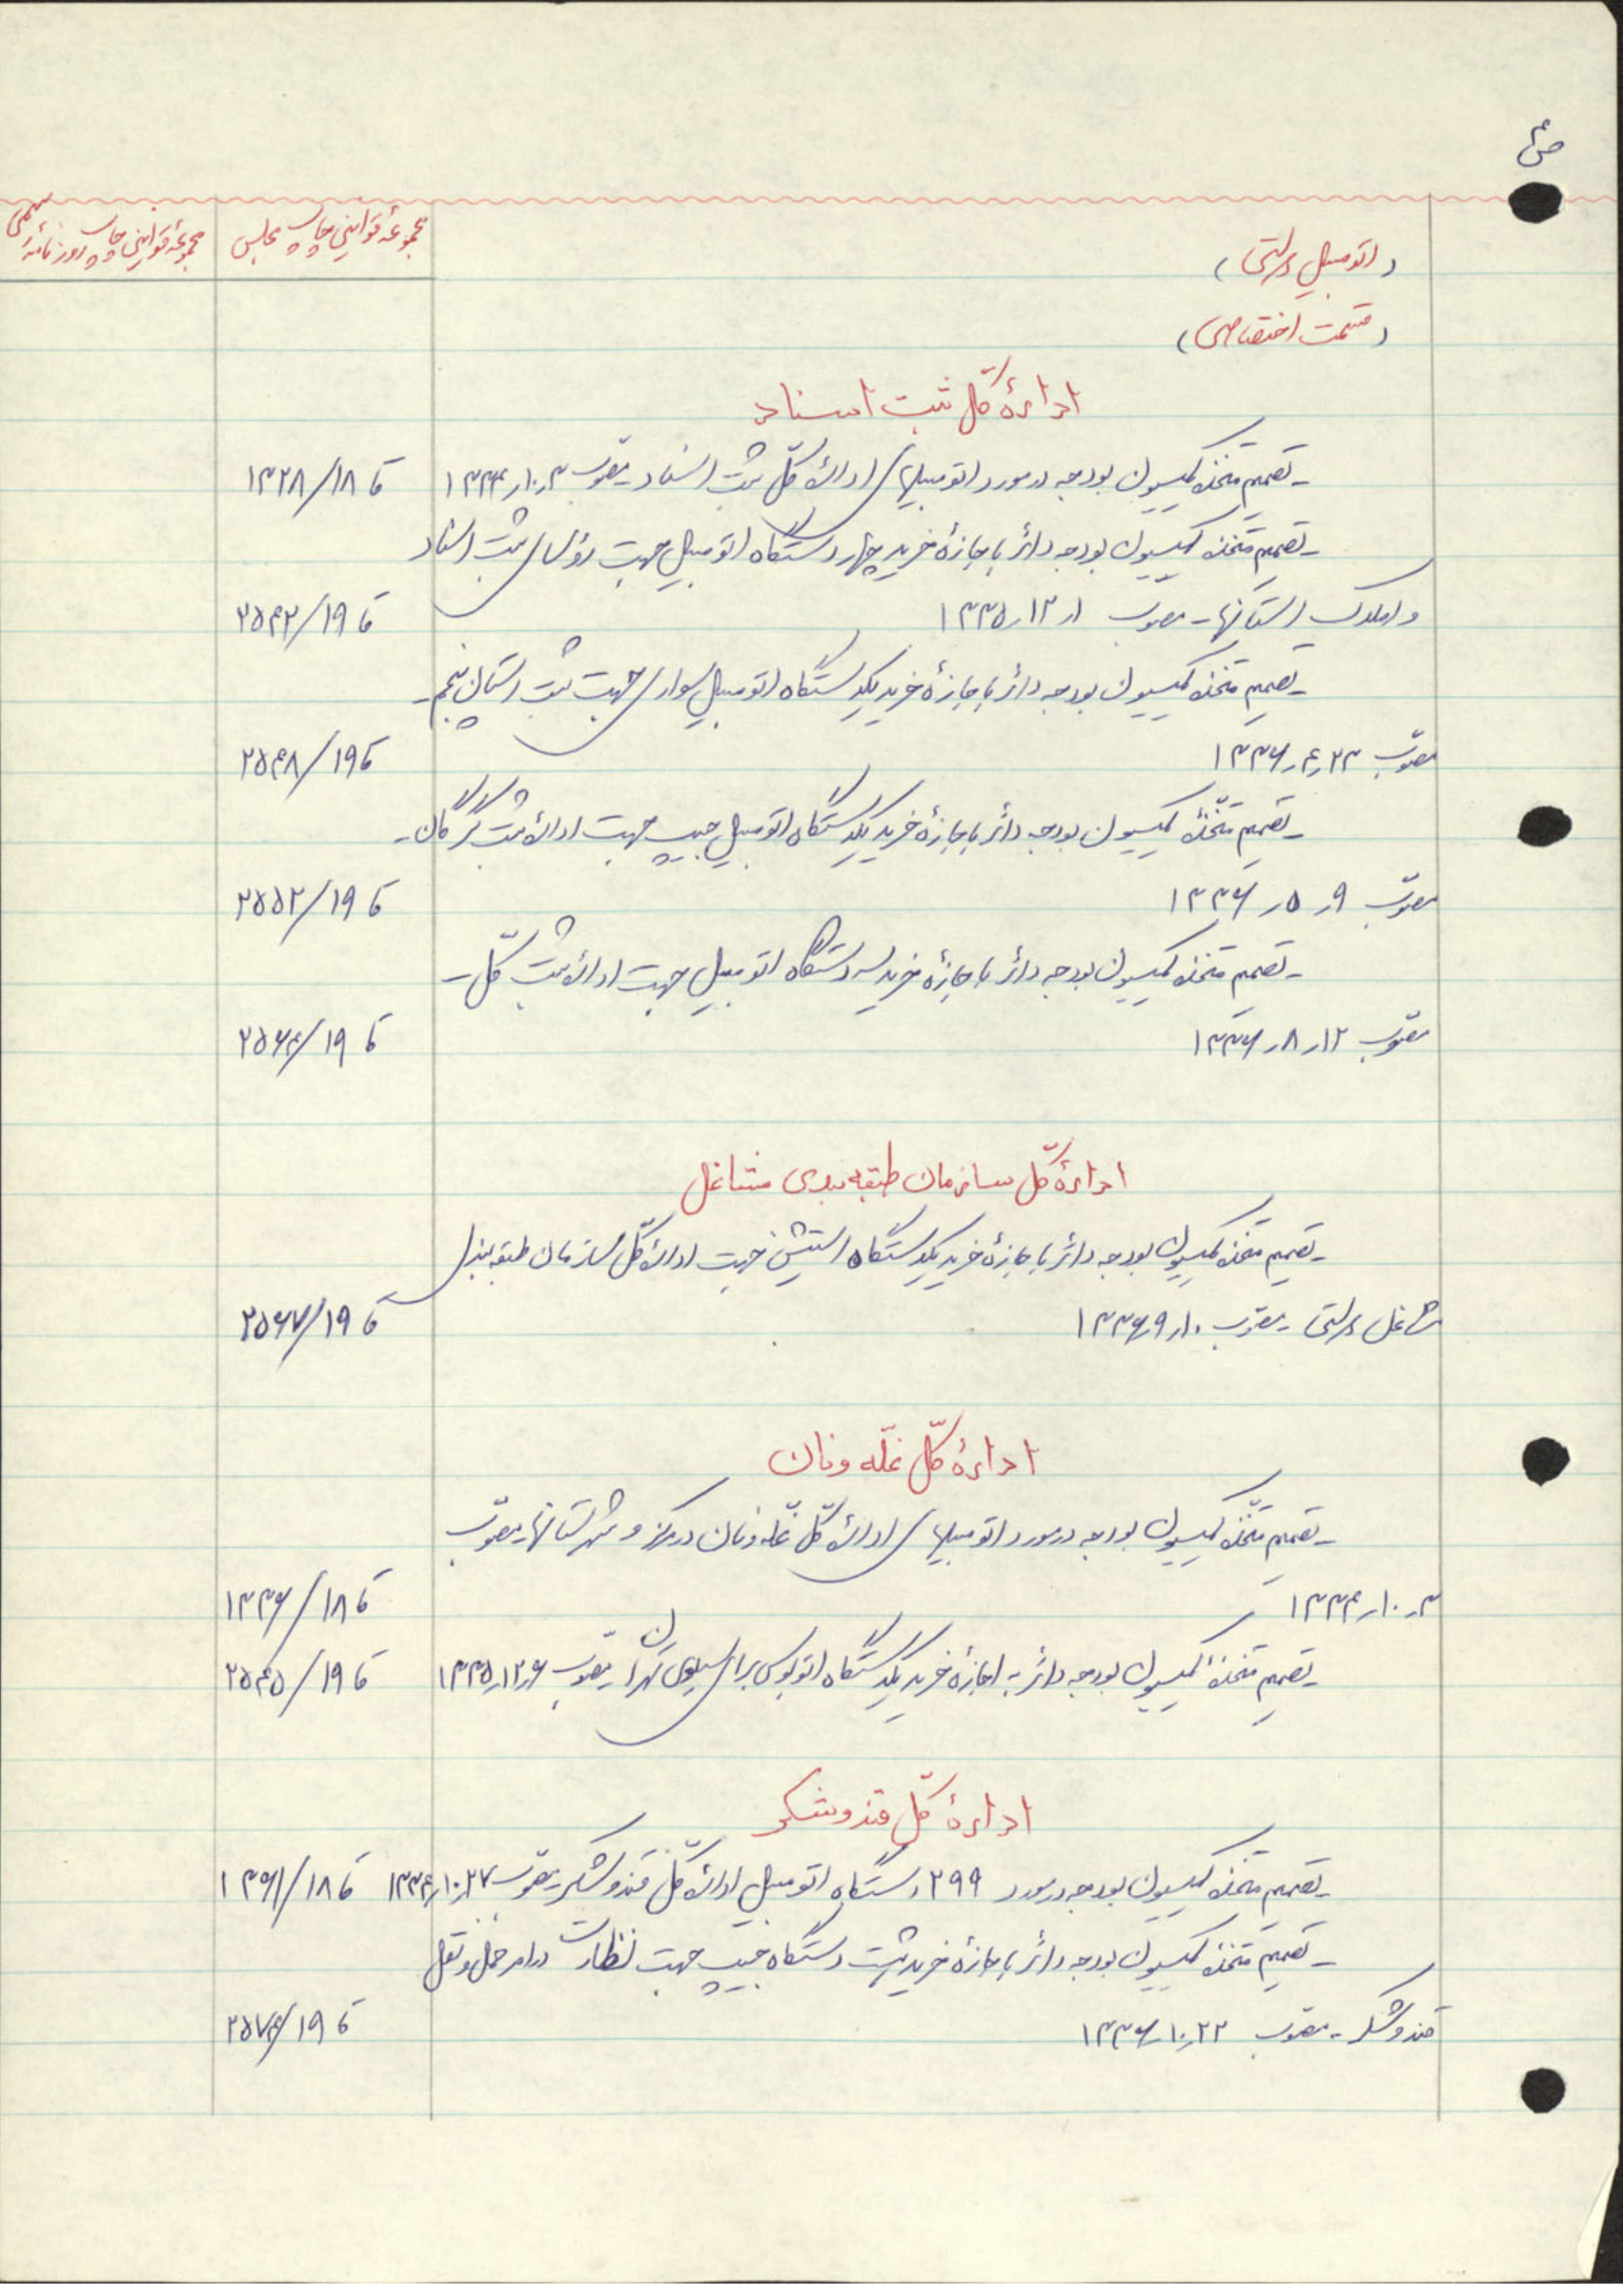 ص۴
(اتومبیل دولتی)
(قسمت اختصاصی)
مجموعهٔ قوانین چاپ مجلس
مجموعهٔ قوانین چاپ روزنامهٔ رسمی
ادارهٔ کلّ ثبت اسناد
ـ تصمیم متّخذه کمیسیون بودجه در مورد اتومبیلهای ادارهٔ کلّ ثبت اسناد ـ مصوّب ۳ر۱۰ر۱۳۳۴ ق ۱۳۲۸/۱۸
ـ تصمیم متّخذه کمیسیون بودجه دائر باجازهٔ خرید چهار دستگاه اتومبیل جهت رؤسای ثبت اسناد
و املاک استانها ـ مصوّب ۱ر۱۲ر۱۳۳۵ ق ۲۵۴۲/۱۹
ـ تصمیم متّخذه کمیسیون بودجه دائر باجازهٔ خرید یکدستگاه اتومبیل سواری جهت ثبت استان پنجم ـ
مصوّب ۲۳ر۴ر۱۳۳۶ ق ۲۵۴۸/۱۹
ـ تصمیم متّخذهٔ کمیسیون بودجه دائر باجازهٔ خرید یکدستگاه اتومبیل جیپ جهت ادارهٔ ثبت گرگان ـ
مصوّب ۹ر۵ر۱۳۳۶ ق ۲۵۵۲/۱۹
ـ تصمیم متّخذه کمیسیون بودجه دائر باجازهٔ خرید سه دستگاه اتومبیل جهت ادارهٔ ثبت کلّ ـ
مصوّب ۱۲ر۸ر۱۳۳۶ ق ۲۵۶۴/۱۹
ادارهٔ کلّ سازمان طبقه بندی مشاغل
ـ تصمیم متّخذه کمیسیون بودجه دائر باجازهٔ خرید یکدستگاه استیشن جهت ادارهٔ کلّ سازمان طبقه بندی
مشاغل دولتی ـ مصوّب ۱۰ر۹ر۱۳۳۶ ق ۲۵۶۷/۱۹
ادارهٔ کلّ غلّه و نان
ـ تصمیم متّخذه کمیسیون بودجه در مورد اتومبیلهای ادارهٔ کلّ غلّه و نان در مرکز و شهرستانها ـ مصوّب
۳ر۱۰ر۱۳۳۴ ق ۱۳۳۶/۱۸
ـ تصمیم متّخذهٔ کمیسیون بودجه دائر به اجازهٔ خرید یکدستگاه اتوبوس برای سیلوی تهران ـ مصوّب ۶ر۱۲ر۱۳۳۵ ق ۲۵۴۵/۱۹
ادارهٔ کلّ قند و شکر
ـ تصمیم متّخذه کمیسیون بودجه در مورد ۲۹۹ دستگاه اتومبیل ادارهٔ کلّ قند و شکر ـ مصوّب ۲۷ر۱۰ر۱۳۳۴ ق ۱۳۶۱/۱۸
ـ تصمیم متّخذهٔ کمیسیون بودجه دائر باجازهٔ خرید بیست دستگاه جیپ جهت نظارت در امر حمل و نقل
قند و شکر ـ مصوّب ۲۲ر۱۰ر۱۳۳۶ ق ۲۵۷۴/۱۹